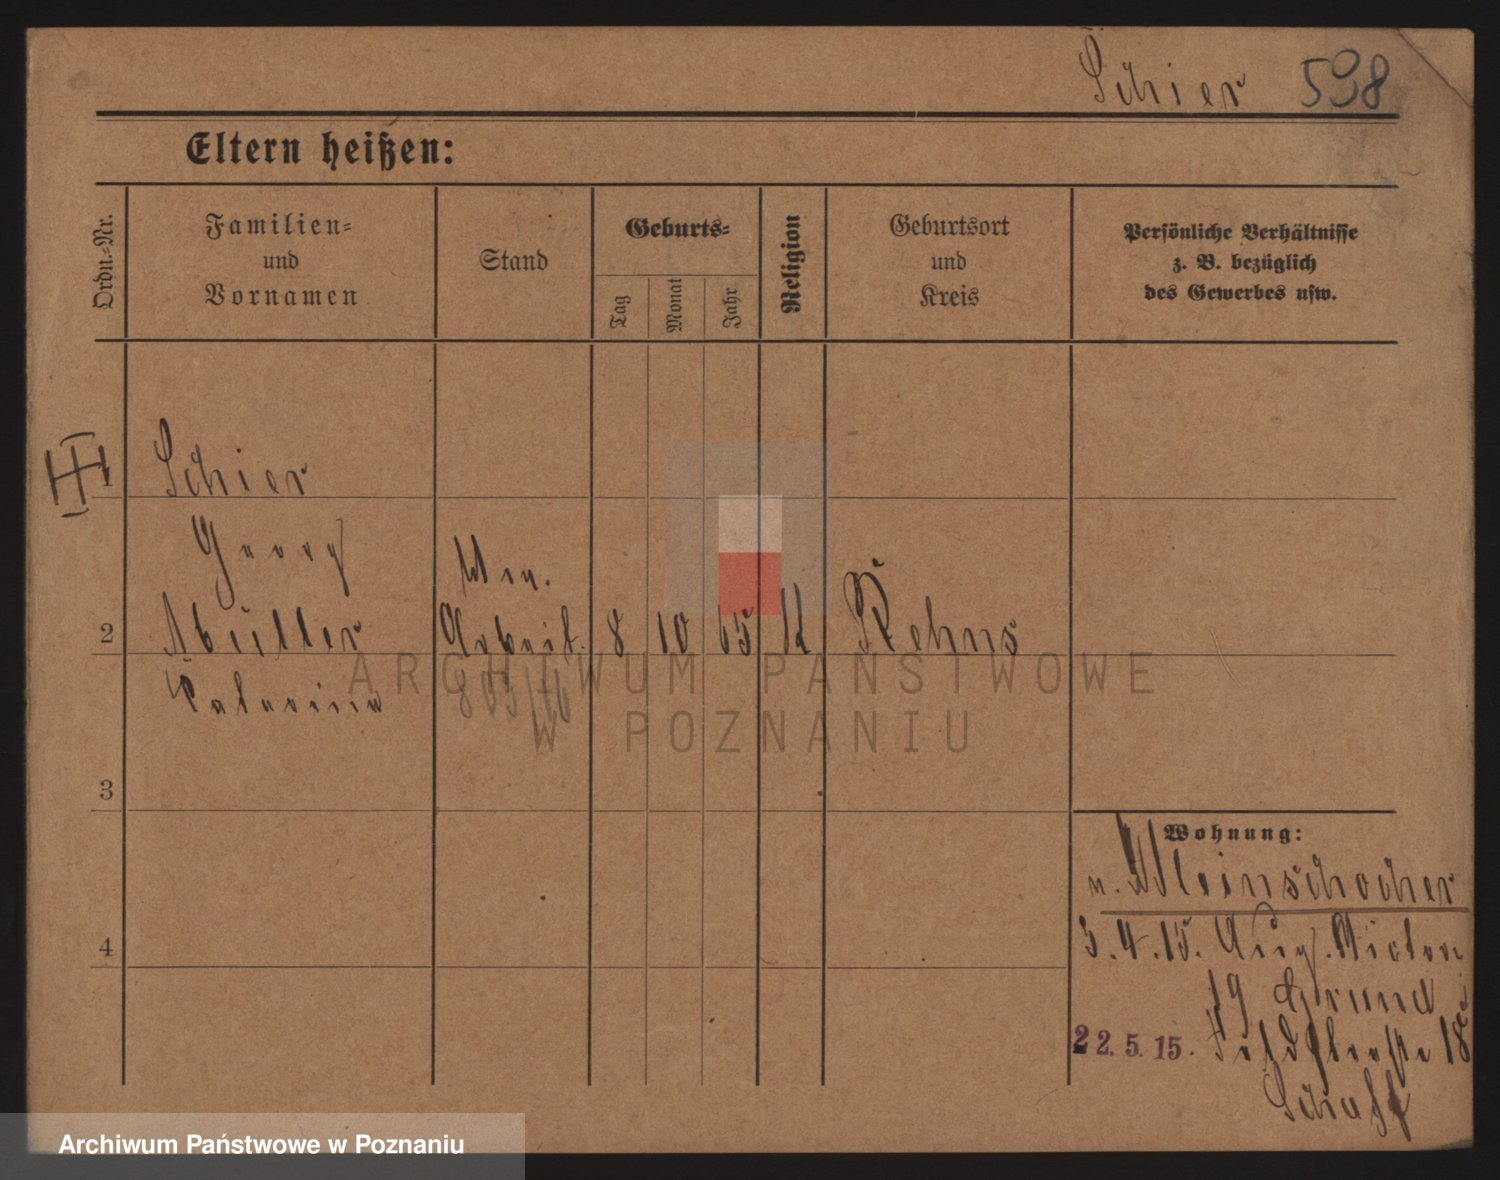 Schier 598
Eltern heißen:
Ordn.-Nr.
Familien-
und
Vornamen
Stand
Geburts-
Tag
Monat
Jahr
Religion
Geburtsort
und
Kreis
Persönliche Verhältnisse
z. B. bezüglich
des Gewerbes usw.
1
Schier
Georg
2
Müller
Arbeit.
8
10
65
K
Rehns
803/16
3
Wohnung:
Kleinschocher
3.4.15. Aug. Victor
19 Grund
22.5.15. Feldstraße 18
Schaff
4
ARCHIWUM PAŃSTWOWE
W POZNANIU
Archiwum Państwowe w Poznaniu